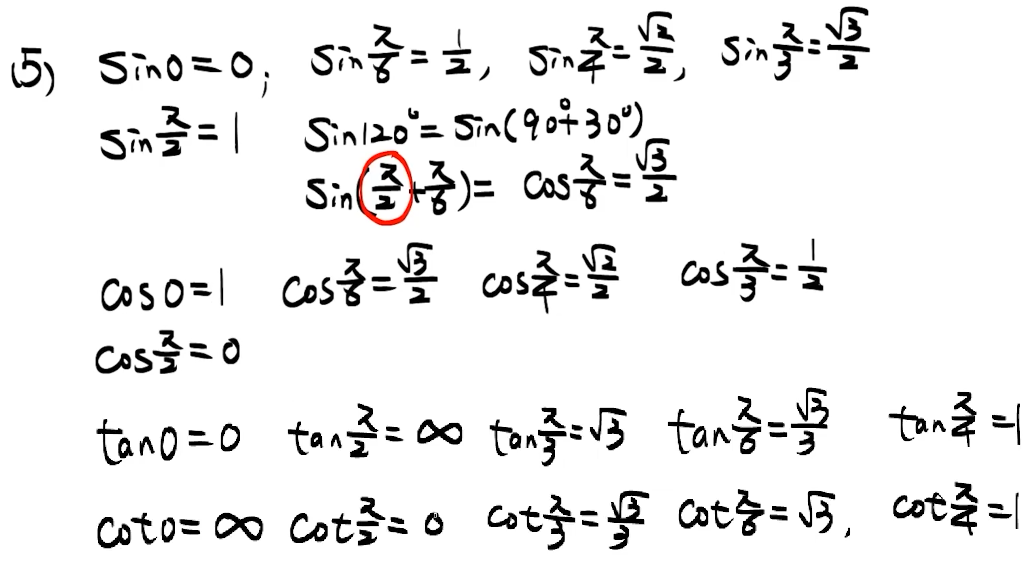 (5) sin0=0; sin π/6 = 1/2, sin π/4 = √2/2, sin π/3 = √3/2
sin π/2 = 1 sin120°= sin(90°+30°)
sin(π/2+π/6)= cos π/6 = √3/2
cos0=1 cos π/6 = √3/2 cos π/4 = √2/2 cos π/3 = 1/2
cos π/2 = 0
tan0=0 tan π/2 = ∞ tan π/3 = √3 tan π/6 = √3/3 tan π/4 = 1
cot0=∞ cot π/2 = 0 cot π/3 = √3/3 cot π/6 = √3, cot π/4 = 1